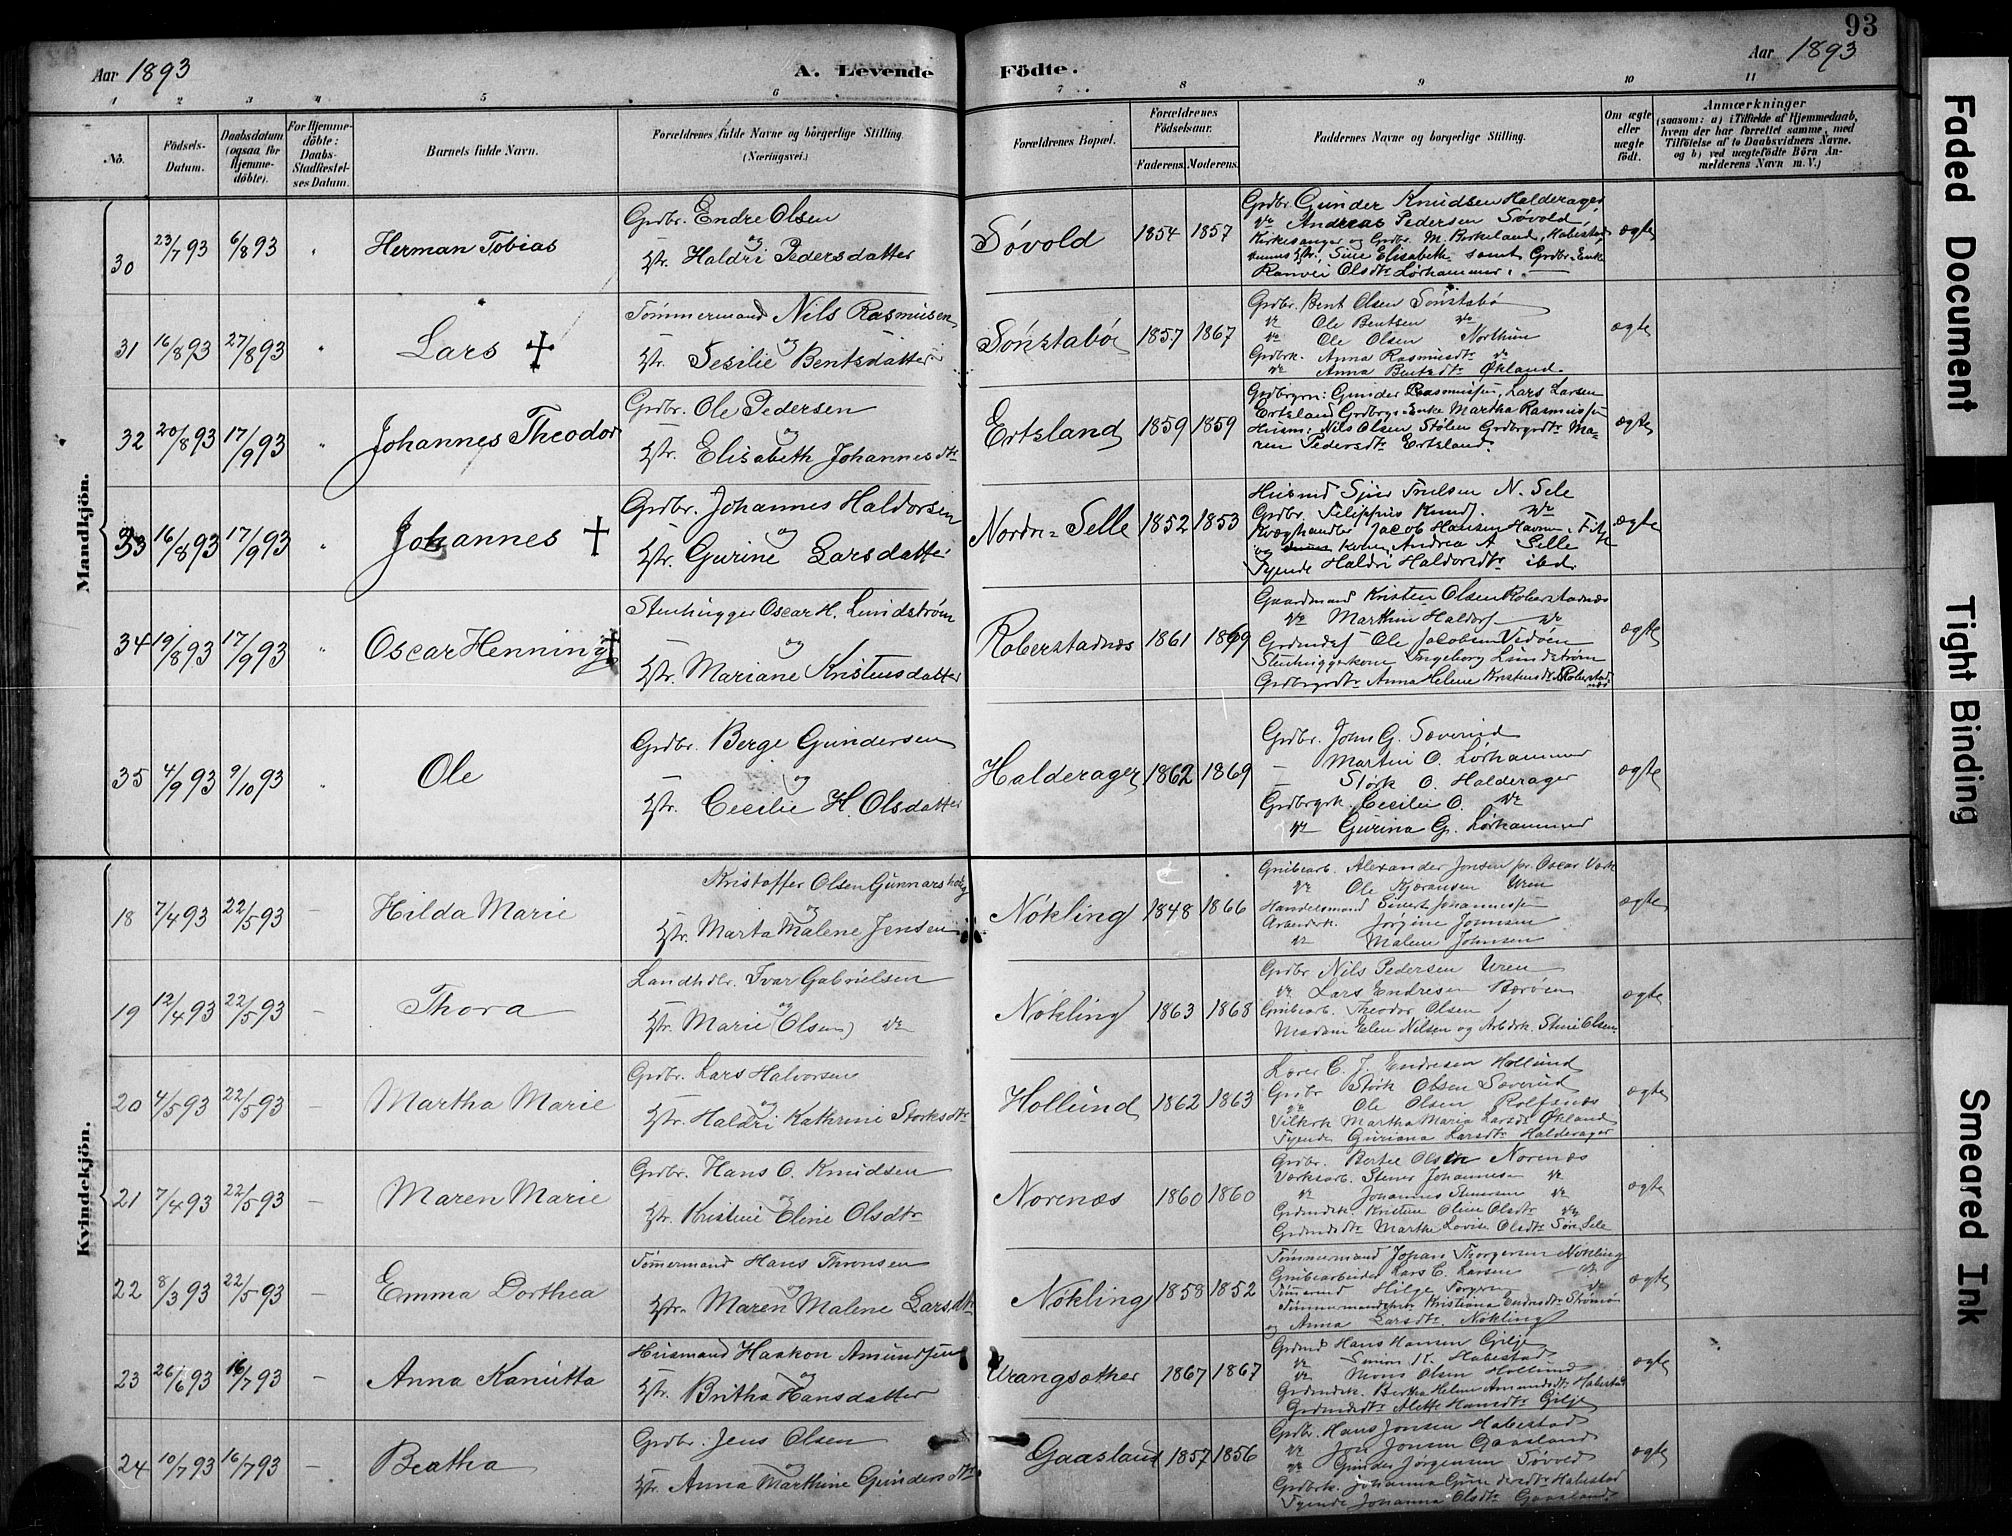 93
Aar 1893
A. Levende Födte.
Aar 1893
1 2 3 4 5 6 7 8 9 10 11
No.
Födsels-Datum.
Daabsdatum (ogsaa for Hjemmedöbte).
For Hjemmedöbte: Daabs-Stadfæstelses Datum.
Barnets fulde Navn.
Forældrenes fulde Navne og borgerlige Stilling. (Næringsvei.)
Forældrenes Bopæl.
Forældrenes Födselsaar.
Faderens. Moderens.
Faddernes Navne og borgerlige Stilling.
Om ægte eller uægte født.
Anmærkninger
(saasom: a) i Tilfælde af Hjemmedaab, hvem der har forrettet samme, med Tilföielse af to Daabsvidners Navne, og b) ved uægtefödte Börn Anmelderens Navn m. V.)
Mandkjön.
30 23/7 93 6/8 93 " Herman Tobias
Grdbr. Endre Olsen
og
Hstr. Haldri Pedersdatter
Søvold 1854 1857
Grdbr. Gunder Knudsen Halderager
do Andreas Pedersen Søvold
Kirkesanger og Grdbr. M. Birkeland, Habestad
dennes Hstr. Sine Elisabeth samt Grdbr. Enke
Ranvei Olsdtr Lørhammer.
ægte
31 16/8 93 27/8 93 " Lars †
Tømmermand Nils Rasmusen
og
Hstr. Sesilie Bentsdatter
Sønstabø 1857 1867
Grdbr. Bent Olsen Sønstabø
do Ole Bentsen do
do Ole Olsen Northun
Grdbrk. Anna Rasmusdtr do
do Anna Bentsdtr Økland.
ægte
32 20/8 93 17/9 93 " Johannes Theodor
Grdbr. Ole Pedersen
og
Hstr. Elisabeth Johannesdtr
Ertsland 1859 1859
Grdbrgrn: Gunder Rasmussen, Lars Larsen
Ertsland Grdbrgs Enke Martha Rasmussen
Husm: Nils Olsen Stølen Grdbrgrdtr Ma-
ren Pedersdtr Ertsland.
ægte
33 16/8 93 17/9 93 " Johannes †
Grdbr. Johannes Haldorsen
og
Hstr. Gurine Larsdatter
Nordre-Selle 1852 1853
Husmd Sjur Trulsen N. Sele
Grdbr. Filippus do
Kvæghandler Jacob Hansen Havn, Fitje
og Kone Andrea A. Selle
Tyende Haldri Haldorsdtr ibd.
ægte
34 19/8 93 17/9 93 " Oscar Henning †
Stenhugger Oscar H. Lundstrøm
og
Hstr. Mariane Kristensdatter
Roberstadnæs 1861 1869
Gaardmand Kristen Olsen Roberstadnæs
do Marthin Haldors do
Ole Jacobsen Vidøen
Stenhuggerkone Ingeborg Lundstrøm
Grdbrgrdtr Anna Helene Kristensdtr Roberstadnæs
ægte
35 4/9 93 9/10 93 " Ole
Grdbr. Berge Gundersen
og
Hstr. Cecilie H. Olsdatter
Halderager 1862 1869
Grdbr. John G. Sæverud
– Martin O. Lørhammer
– Størk O. Halderager
Grdbrgrk. Cecilie O. do
do Gurina G. Lørhammer
ægte
Kvindekjön.
18 7/4 93 22/5 93 – Hilda Marie
Kristoffer Olsen Gunnarshoug
og
Hstr. Marta Malene Jensen
Nøkling 1848 1866
Grubearb. Alexander Jensen pr. Oscar Værk
do Ole Kjøransen Uren
Handelsmand Sivert Johannessen
Arbeidsk. Jørgine Johnsen
do Malene Johnsen
ægte
19 12/4 93 22/5 93 – Thora
Landhdlr. Ivar Gabrielsen
og
Hstr. Marie (Olsen) do
Nøkling 1863 1868
Grdbr Nils Pedersen Uren
do Lars Endresen Bærøen
Grubearb. Theodor Olsen
Madam Elen Nilsen og Arbdrk. Stine Olsen.
ægte
20 4/5 93 22/5 93 – Martha Marie
Grdbr. Lars Halvorsen
og
Hstr. Haldri Kathrine Storksdtr
Hollund 1862 1863
Lærer C. J. Endresen Hollund
Grdbr Størk Olsen Sæverud
do Ole Olsen Rolfsnæs
Martha Maria Larsdtr Økland
Tyende Guriana Larsdtr Halderager
ægte
21 7/4 93 22/5 93 – Maren Marie
Grdbr. Hans O. Knudsen
og
Hstr. Kristine Eline Olsdtr
Norenæs 1860 1860
Grdbr. Bertel Olsen Norenæs
Værksarb. Stener Johannesen do
do Johannes Stenersen do
Grdmdsk Kristen Oline Olsdtr do
Grdmdsdtr Marthe Lovise Olsdtr Søre Sele
ægte
22 8/3 93 22/5 93 – Emma Dorthea
Tømmermand Hans Thronsen
og
Hstr. Maren Malene Larsdtr
Nøkling 1858 1852
Tømmermand Johan Thorgersen Nøkling
Grubearbeider Lars C. Larsen do
Tømmermd Hilge do
Tømmermandskone Kristiana Endresdtr Strømøi
og Anna Larsdtr. Nøkling
ægte
23 26/6 93 16/7 93 – Anna Kanutta
Husmand Haakon Amundsen
og
Hstr. Britha Hansdatter
Vrangsæther 1867 1867
Grdmd Hans Hansen Gilje
do Simon K. Habestad
do Mons Olsen Hollund
Grdmdsk. Bertha Helene Amundsdtr Habestad
Grdmdsdtr Alette Hansdtr Gilje
ægte
24 10/7 93 16/7 93 – Beatha
Grdbr. Jens Olsen
og
Hstr. Anna Marthine Gundersdtr
Gaasland 1857 1856
Grdbr. Hans Jonsen Habestad
do Jon Jonsen Gaasland
do Gunder Jørgensen Søvold
Grdbrk. Johanna Gundersdtr Habestad
Tyende Johanna Olsdtr Gaasland
ægte
Faded Document
Tight Binding
Smeared Ink